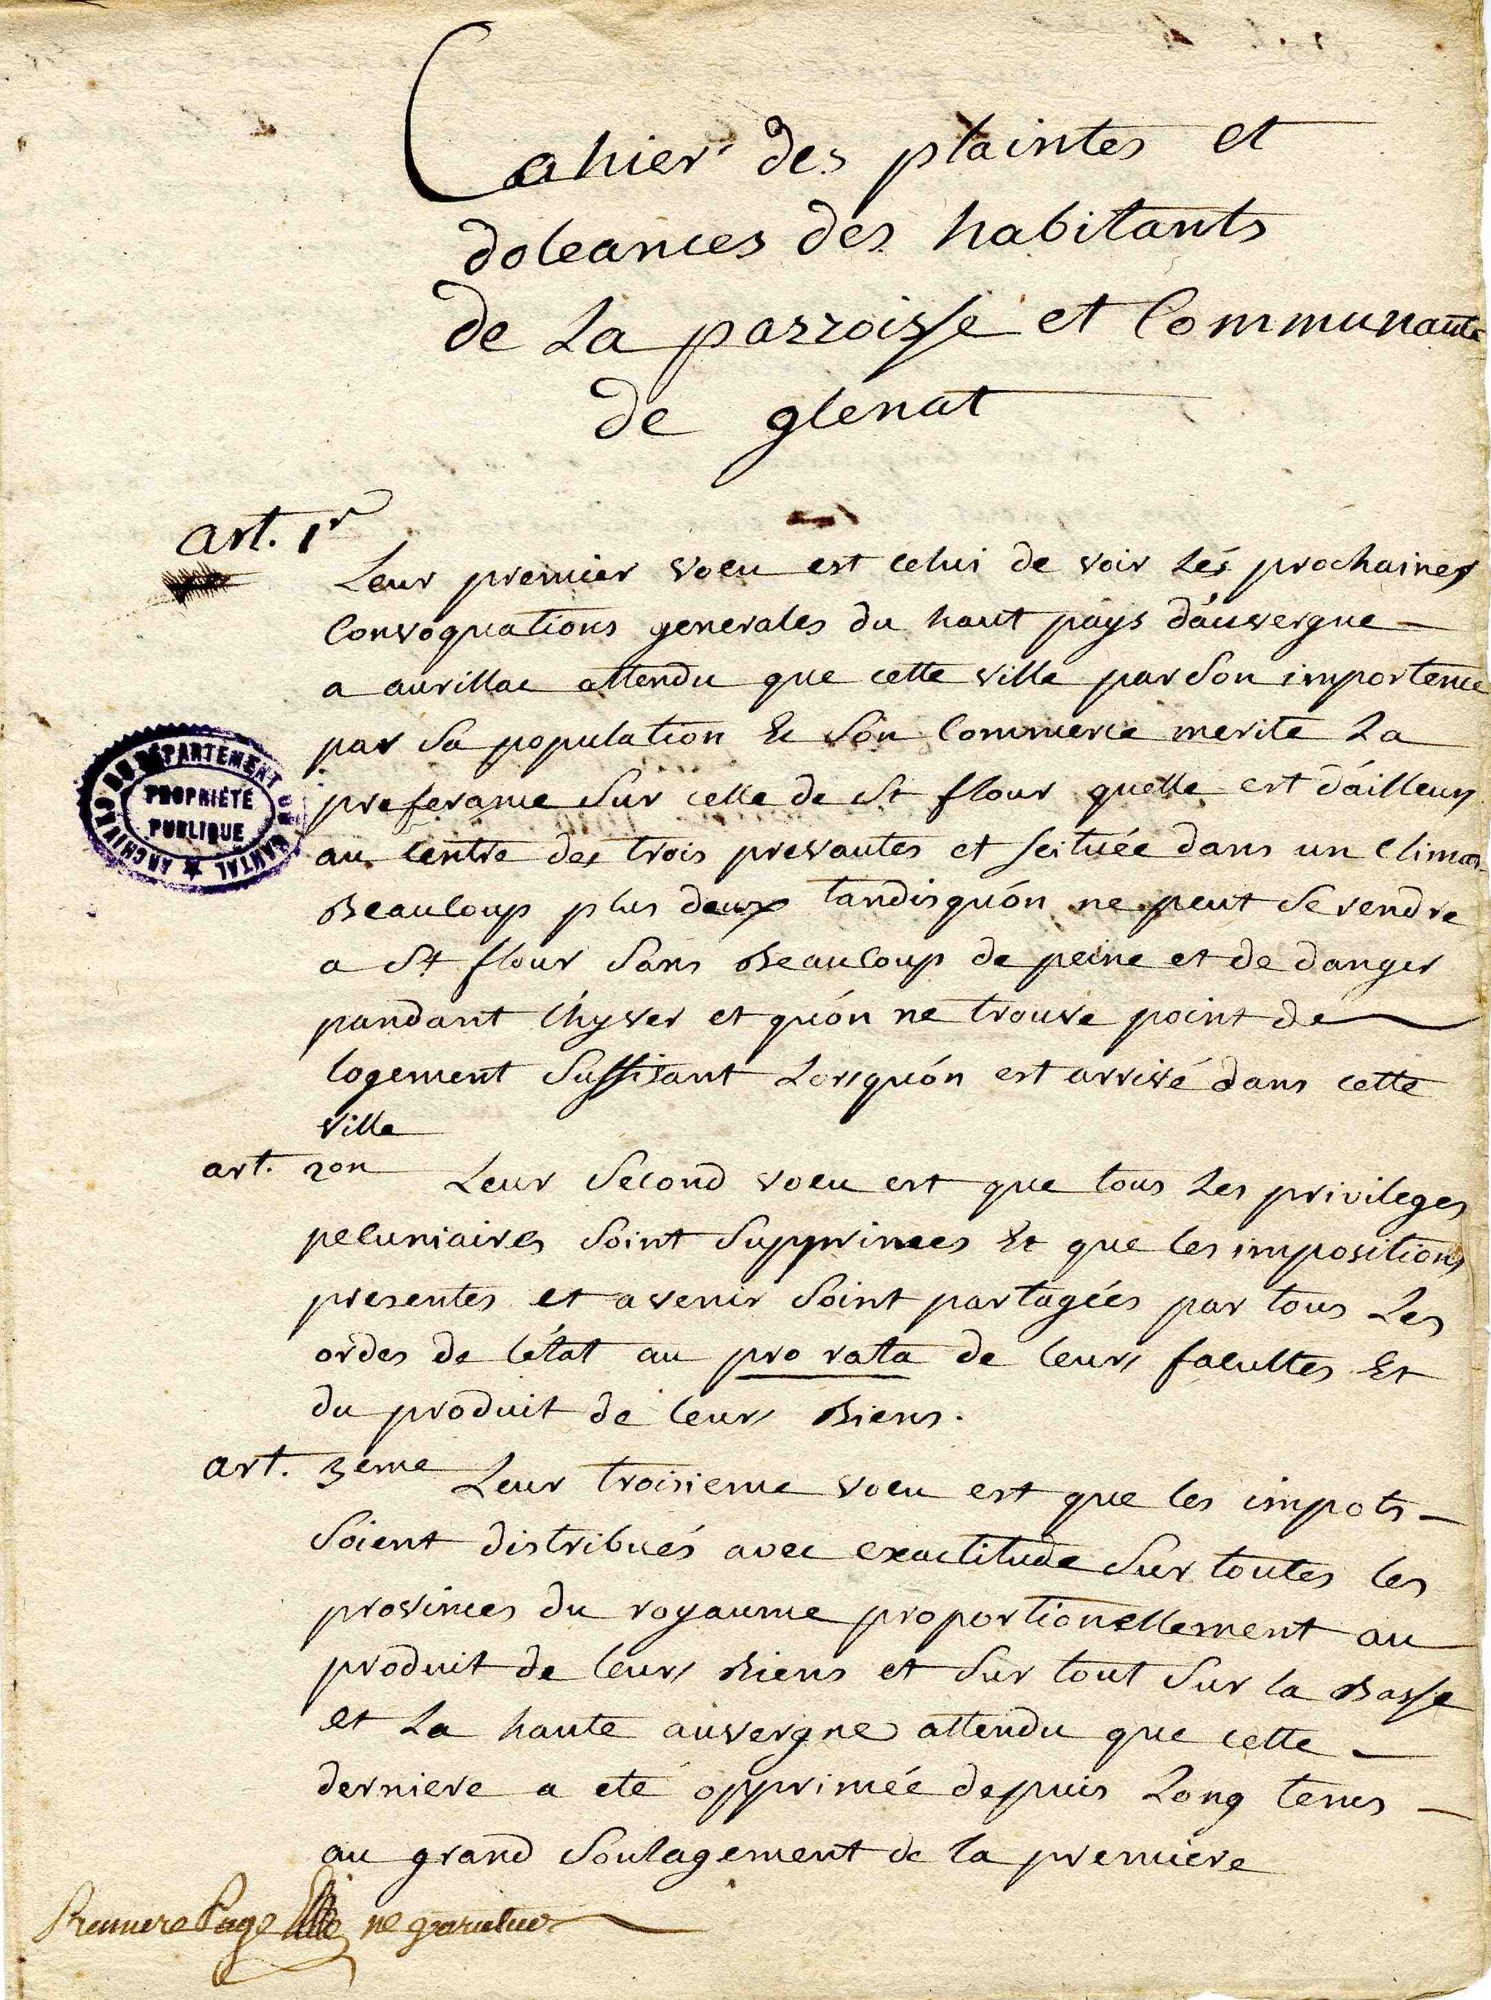 Cahier des plaintes et
doleances des habitants
de La parroisse et Communauté
de glenat
art. 1r
Leur premier voeu est celui de voir Lés prochaines
Convoquations generales du haut pays d'auvergne
a aurillac attendu que cette ville par Son importence
par Sa population & Son Commerce merite La
preferance Sur celle de St flour quelle est d'ailleurs
au Centre des trois prevautes et scituée dans un Climat
Beaucoup plus doux tandisquón ne peut Se rendre
a St flour Sans Beaucoup de peine et de danger
pandant l'hyver et quón ne trouve point de
logement Suffisant Lorsquón est arrivé dans cette
ville
art. 2on Leur Second voeu est que tous Les privileges
pecuniaires Soint Supprimees Et que les impositions
presentes et avenir Soint partagées par tous Les
ordes de l'état au pro rata de leurs facultes Et
du produit de leurs Biens.
art. 3eme Leur troisieme voeu est que les impots
Soient distribués avec exactitude Sur toutes les
provinces du royaume proportionellement au
produit de leurs Biens et Sur tout Sur la Basse
et La haute auvergne attendu que cette
derniere a eté opprimée depuis Long tems
au grand Soulagement de la premiere
Premiere Page ne varietur
ARCHIVES DU DÉPARTEMENT DU CANTAL
PROPRIÉTÉ
PUBLIQUE